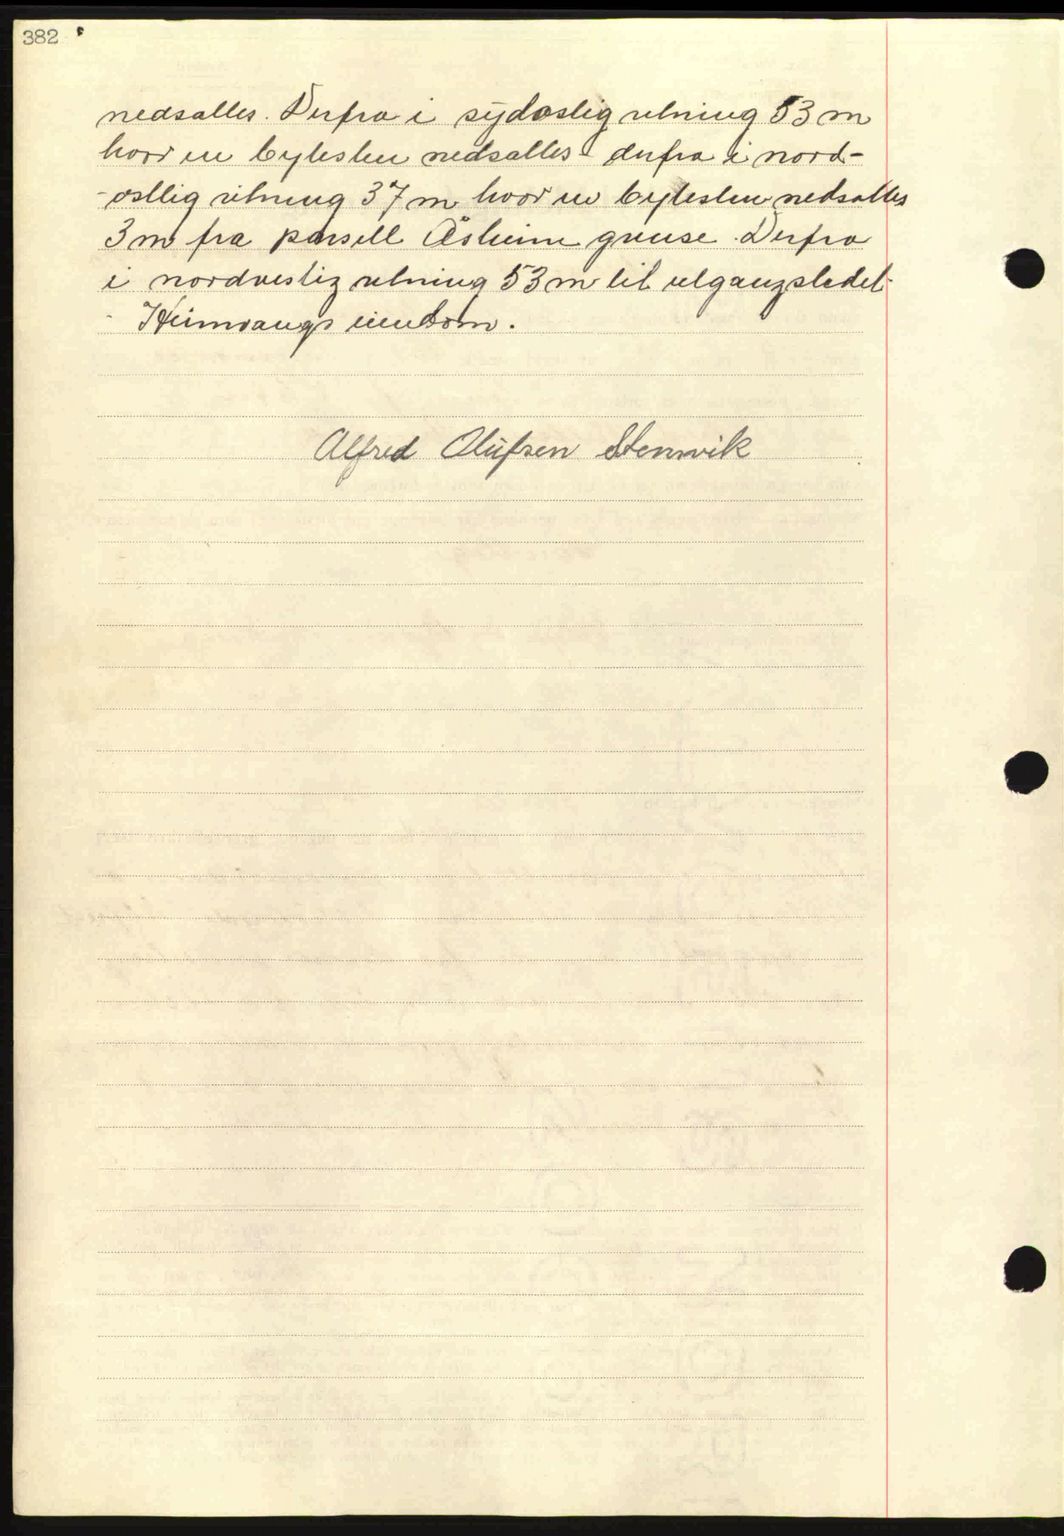 382
nedsattes. Derfra i sydostlig retning 53 m
hvor en bytesten nedsattes - derfra i nord-
-ostlig retning 37 m hvor en bytesten nedsattes
3 m fra parsell Åsheim grense. Derfra
i nordvestlig retning 53 m til utgangstedet
- Heimvangs eiendom.
Alfred Olufsen Stenvik